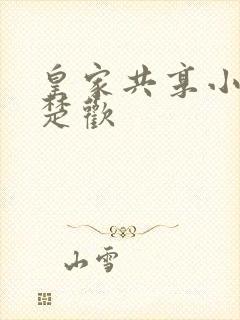 皇家共享小
楚歡
山雪